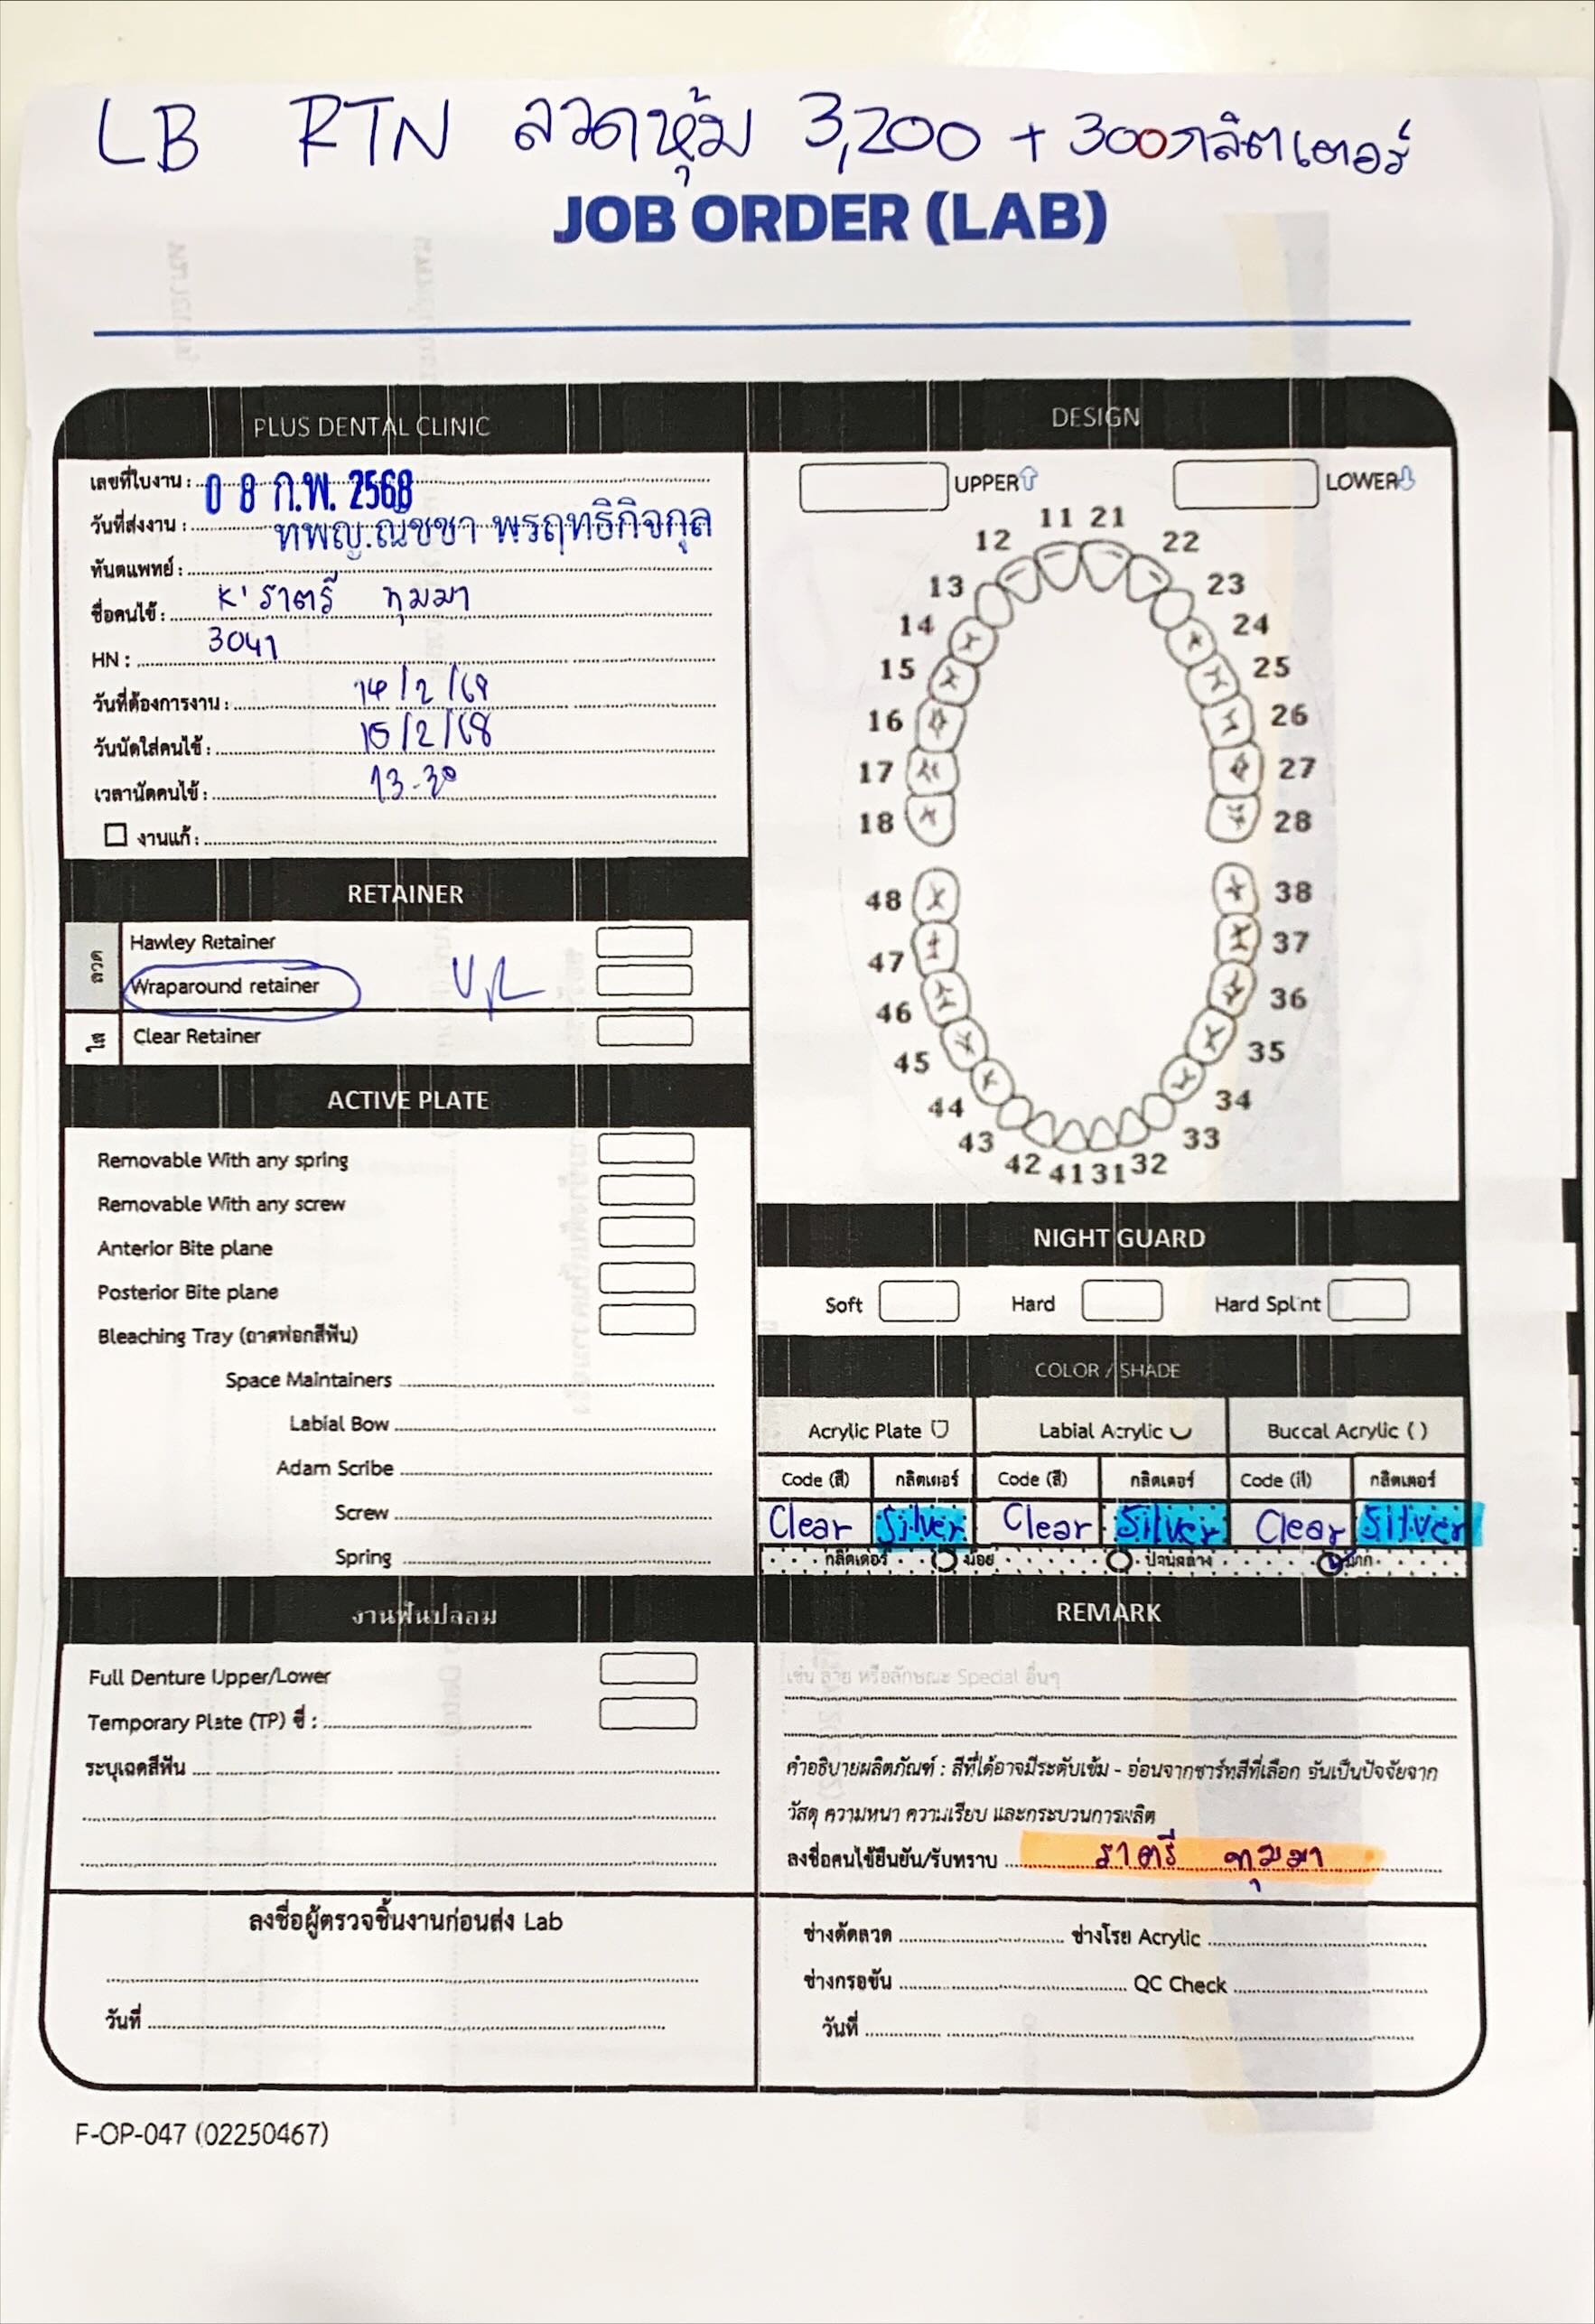 LB RTN ลวดหุ้ม 3,200 + 300 กลิตเตอร์
JOB ORDER (LAB)
PLUS DENTAL CLINIC
เลขที่ใบงาน :
08 ก.พ. 2568
วันที่ส่งงาน :
ทพญ.ณัชชา พรฤทธิกิจกุล
ทันตแพทย์ :
ชื่อคนไข้ : K' ราตรี ทุมมา
HN : 3041
วันที่ต้องการงาน : 14/2/68
วันนัดใส่คนไข้ : 15/2/68
เวลานัดคนไข้ : 13-30
งานแก้ :
RETAINER
ลวด
Hawley Retainer
Wraparound retainer U/L
ใส
Clear Retainer
ACTIVE PLATE
Removable With any spring
Removable With any screw
Anterior Bite plane
Posterior Bite plane
Bleaching Tray (ถาดฟอกสีฟัน)
Space Maintainers
Labial Bow
Adam Scribe
Screw
Spring
งานฟันปลอม
Full Denture Upper/Lower
Temporary Plate (TP) ซี่ :
ระบุเฉดสีฟัน
ลงชื่อผู้ตรวจชิ้นงานก่อนส่ง Lab
วันที่
DESIGN
UPPER LOWER
11 21
12 22
13 23
14 24
15 25
16 26
17 27
18 28
48 38
47 37
46 36
45 35
44 34
43 33
42 41 31 32
NIGHT GUARD
Soft Hard Hard Splint
COLOR / SHADE
Acrylic Plate Labial Acrylic Buccal Acrylic ( )
Code (สี) กลิตเตอร์ Code (สี) กลิตเตอร์ Code (สี) กลิตเตอร์
Clear Silver Clear Silver Clear Silver
กลิตเตอร์ น้อย ปานกลาง มาก
REMARK
เช่น ลาย หรือลักษณะ Special อื่นๆ
คำอธิบายผลิตภัณฑ์ : สีที่ได้อาจมีระดับเข้ม - อ่อนจากชาร์ทสีที่เลือก อันเป็นปัจจัยจาก
วัสดุ ความหนา ความเรียบ และกระบวนการผลิต
ลงชื่อคนไข้ยืนยัน/รับทราบ ราตรี ทุมมา
ช่างดัดลวด ช่างโรย Acrylic
ช่างกรอขัน QC Check
วันที่
F-OP-047 (02250467)